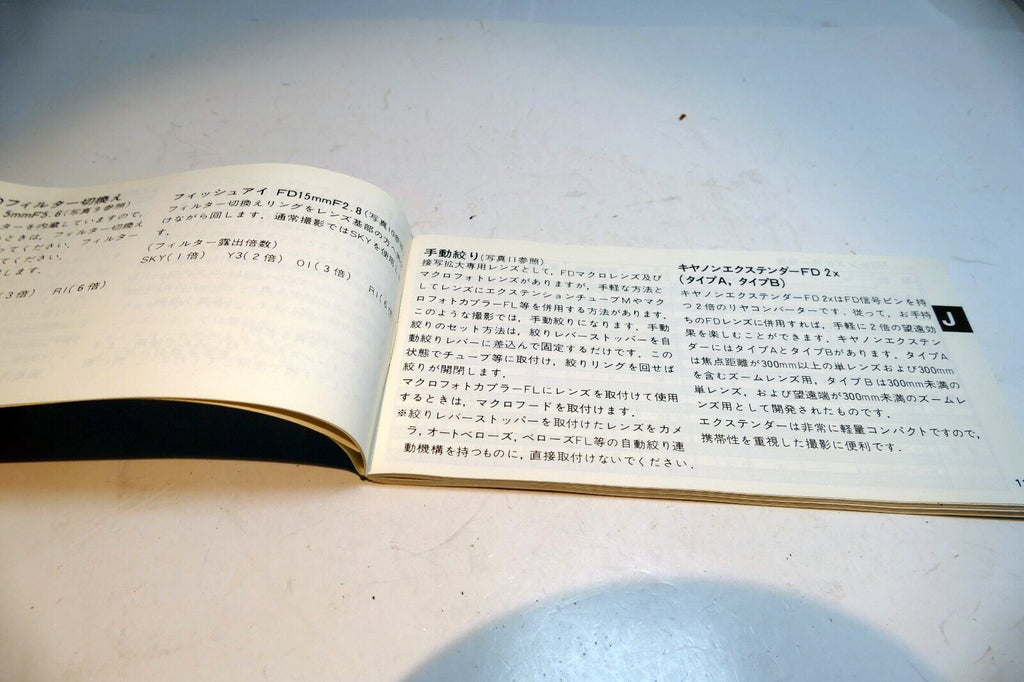 フィルター切換え
5mmF5.6(写真9参照)
ターを内蔵していますので,
ときは, フィルター切換え
てください. フィルター
ください.
します.
(3倍) R1(6倍)
フィッシュアイ FD15mmF2.8(写真10参照)
フィルター切換えリングをレンズ基部の方へ
けながら回します. 通常撮影ではSKYを使用し
(フィルター露出倍数)
SKY(1倍) Y3(2倍) O1(3倍) R1(6
手動絞り(写真11参照)
接写拡大専用レンズとして, FDマクロレンズ及び
マクロフォトレンズがありますが, 手軽な方法と
してレンズにエクステンションチューブMやマク
ロフォトカプラーFL等を併用する方法があります.
このような撮影では, 手動絞りになります. 手動
絞りのセット方法は, 絞りレバーストッパーを自
動絞りレバーに差込んで固定するだけです. この
状態でチューブ等に取付け, 絞りリングを回せば
絞りが開閉します.
マクロフォトカプラーFLにレンズを取付けて使用
するときは, マクロフードを取付けます.
※絞りレバーストッパーを取付けたレンズをカメ
ラ, オートベローズ, ベローズFL等の自動絞り連
動機構を持つものに, 直接取付けないでください.
キヤノンエクステンダーFD 2x
(タイプA, タイプB)
キヤノンエクステンダーFD 2xはFD信号ピンを持
つ2倍のリヤコンバーターです. 従って, お手持
ちのFDレンズに併用すれば, 手軽に2倍の望遠効
果を楽しむことができます. キヤノンエクステン
ダーにはタイプAとタイプBがあります. タイプA
は焦点距離が300mm以上の単レンズおよび300mm
を含むズームレンズ用, タイプBは300mm未満の
単レンズ, および望遠端が300mm未満のズームレ
ンズ用として開発されたものです.
エクステンダーは非常に軽量コンパクトですので,
携帯性を重視した撮影に便利です.
J